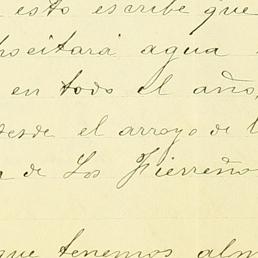 esto escribe que
agua
en todo el año,
desde el arroyo de
de Los Fierreño
que tenemos